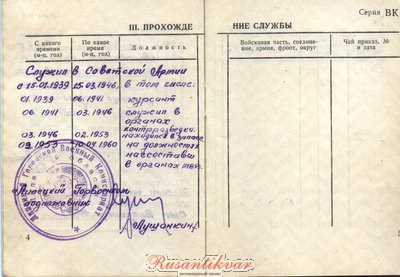 Серия ВК
III. ПРОХОЖДЕ
НИЕ СЛУЖБЫ
С какого времени (м-ц, год)
По какое время (м-ц, год)
Должность
Войсковая часть, соединение, армия, фронт, округ
Чей приказ, № и дата
Служил в Советской Армии
с 15.01.1939 15.03.1946, в том числе:
01.1939 06.1941 курсант
06.1941 03.1946 служил в
органах
контрразведки.
03.1946 02.1953 находился в запасе
02.1953 10.04.1960 на должностях
начсостава
в органах
Липецкий Горвоенком
подполковник
Лушанкин
4
5
Rusantikvar